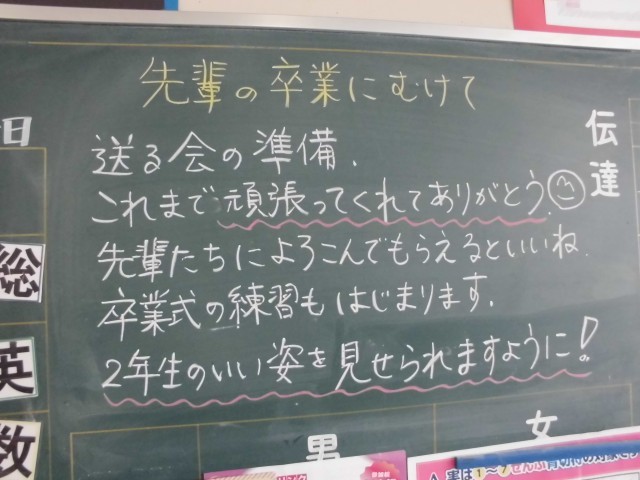 先輩の卒業にむけて
送る会の準備、
これまで頑張ってくれてありがとう。
先輩たちによろこんでもらえるといいね。
卒業式の練習もはじまります。
2年生のいい姿を見せられますように!
伝達
日
総
英
数
男
女